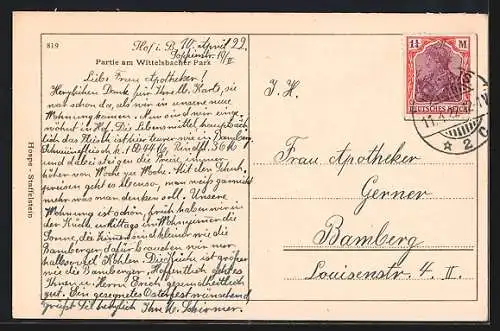 819
Hof i. B. 10. April 22.
Poppenstr. 10/II
Partie am Wittelsbacher Park
Liebe Frau Apotheker!
Herzlichen Dank für Ihre lb. Karte, sie
war schon da, als wir in unsere neue
Wohnung kamen. Nun sind wir eingewöhnt
in Hof. Die Lebensmittel hauptsächlich
das Fleisch ist hier teurer wie in Bamberg
Schweinefleisch à 44 M, Rindfl. 36 M
und dabei steigen die Preise immer
höher von Woche zu Woche. Mit den Schuhpreisen
geht es ebenso, man weiß garnicht
mehr was man denken soll. Unsere
Wohnung ist schön, früh haben wir in
der Küche, mittags im Wohnzimmer die
Sonne, die Zimmer sind kleiner wie die
Bamberger, dafür brauchen wir nur
halb soviel Kohlen. Die Küche ist größer
wie die Bamberger. Hoffentlich geht es
Ihnen u. Herrn Erich gesundheitlich
gut. Ein gesegnetes Osterfest wünschend
grüßt Sie herzlich Ihre M. Schirmer.
Höspe - Staffelstein
1¼ M
DEUTSCHES REICH
2 C
I. H.
Frau Apotheker
Gerner
Bamberg
Louisenstr. 4. II.